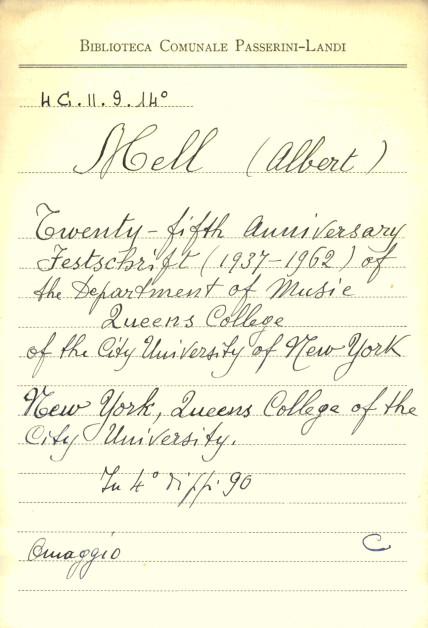 BIBLIOTECA COMUNALE PASSERINI-LANDI
4 G. II. 9. 14°
Mell (Albert)
Twenty-fifth Anniversary
Festschrift (1937-1962) of
the Department of Music
Queens College
of the City University of New York
New York, Queens College of the
City University.
In 4° di pp. 90
Omaggio C